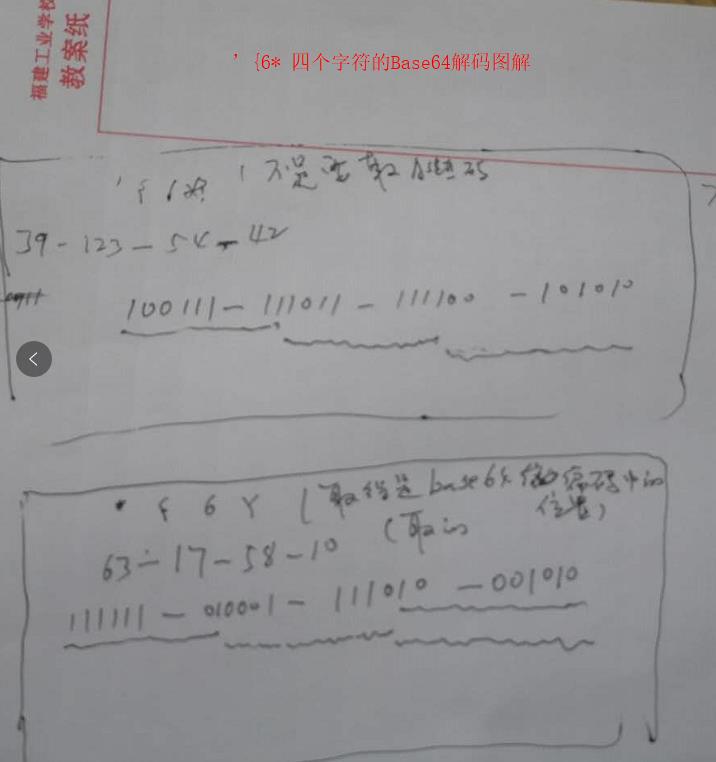 福建工业学校
教案纸
' {6* 四个字符的Base64解码图解
' { 6 ( 不是
39 - 123 - 54 - 42
100111 - 111011 - 111100 - 101010
6 Y ( 取得是 base64 编码中的
位置)
63 - 17 - 58 - 10 (取的
111111 - 010001 - 111010 - 001010